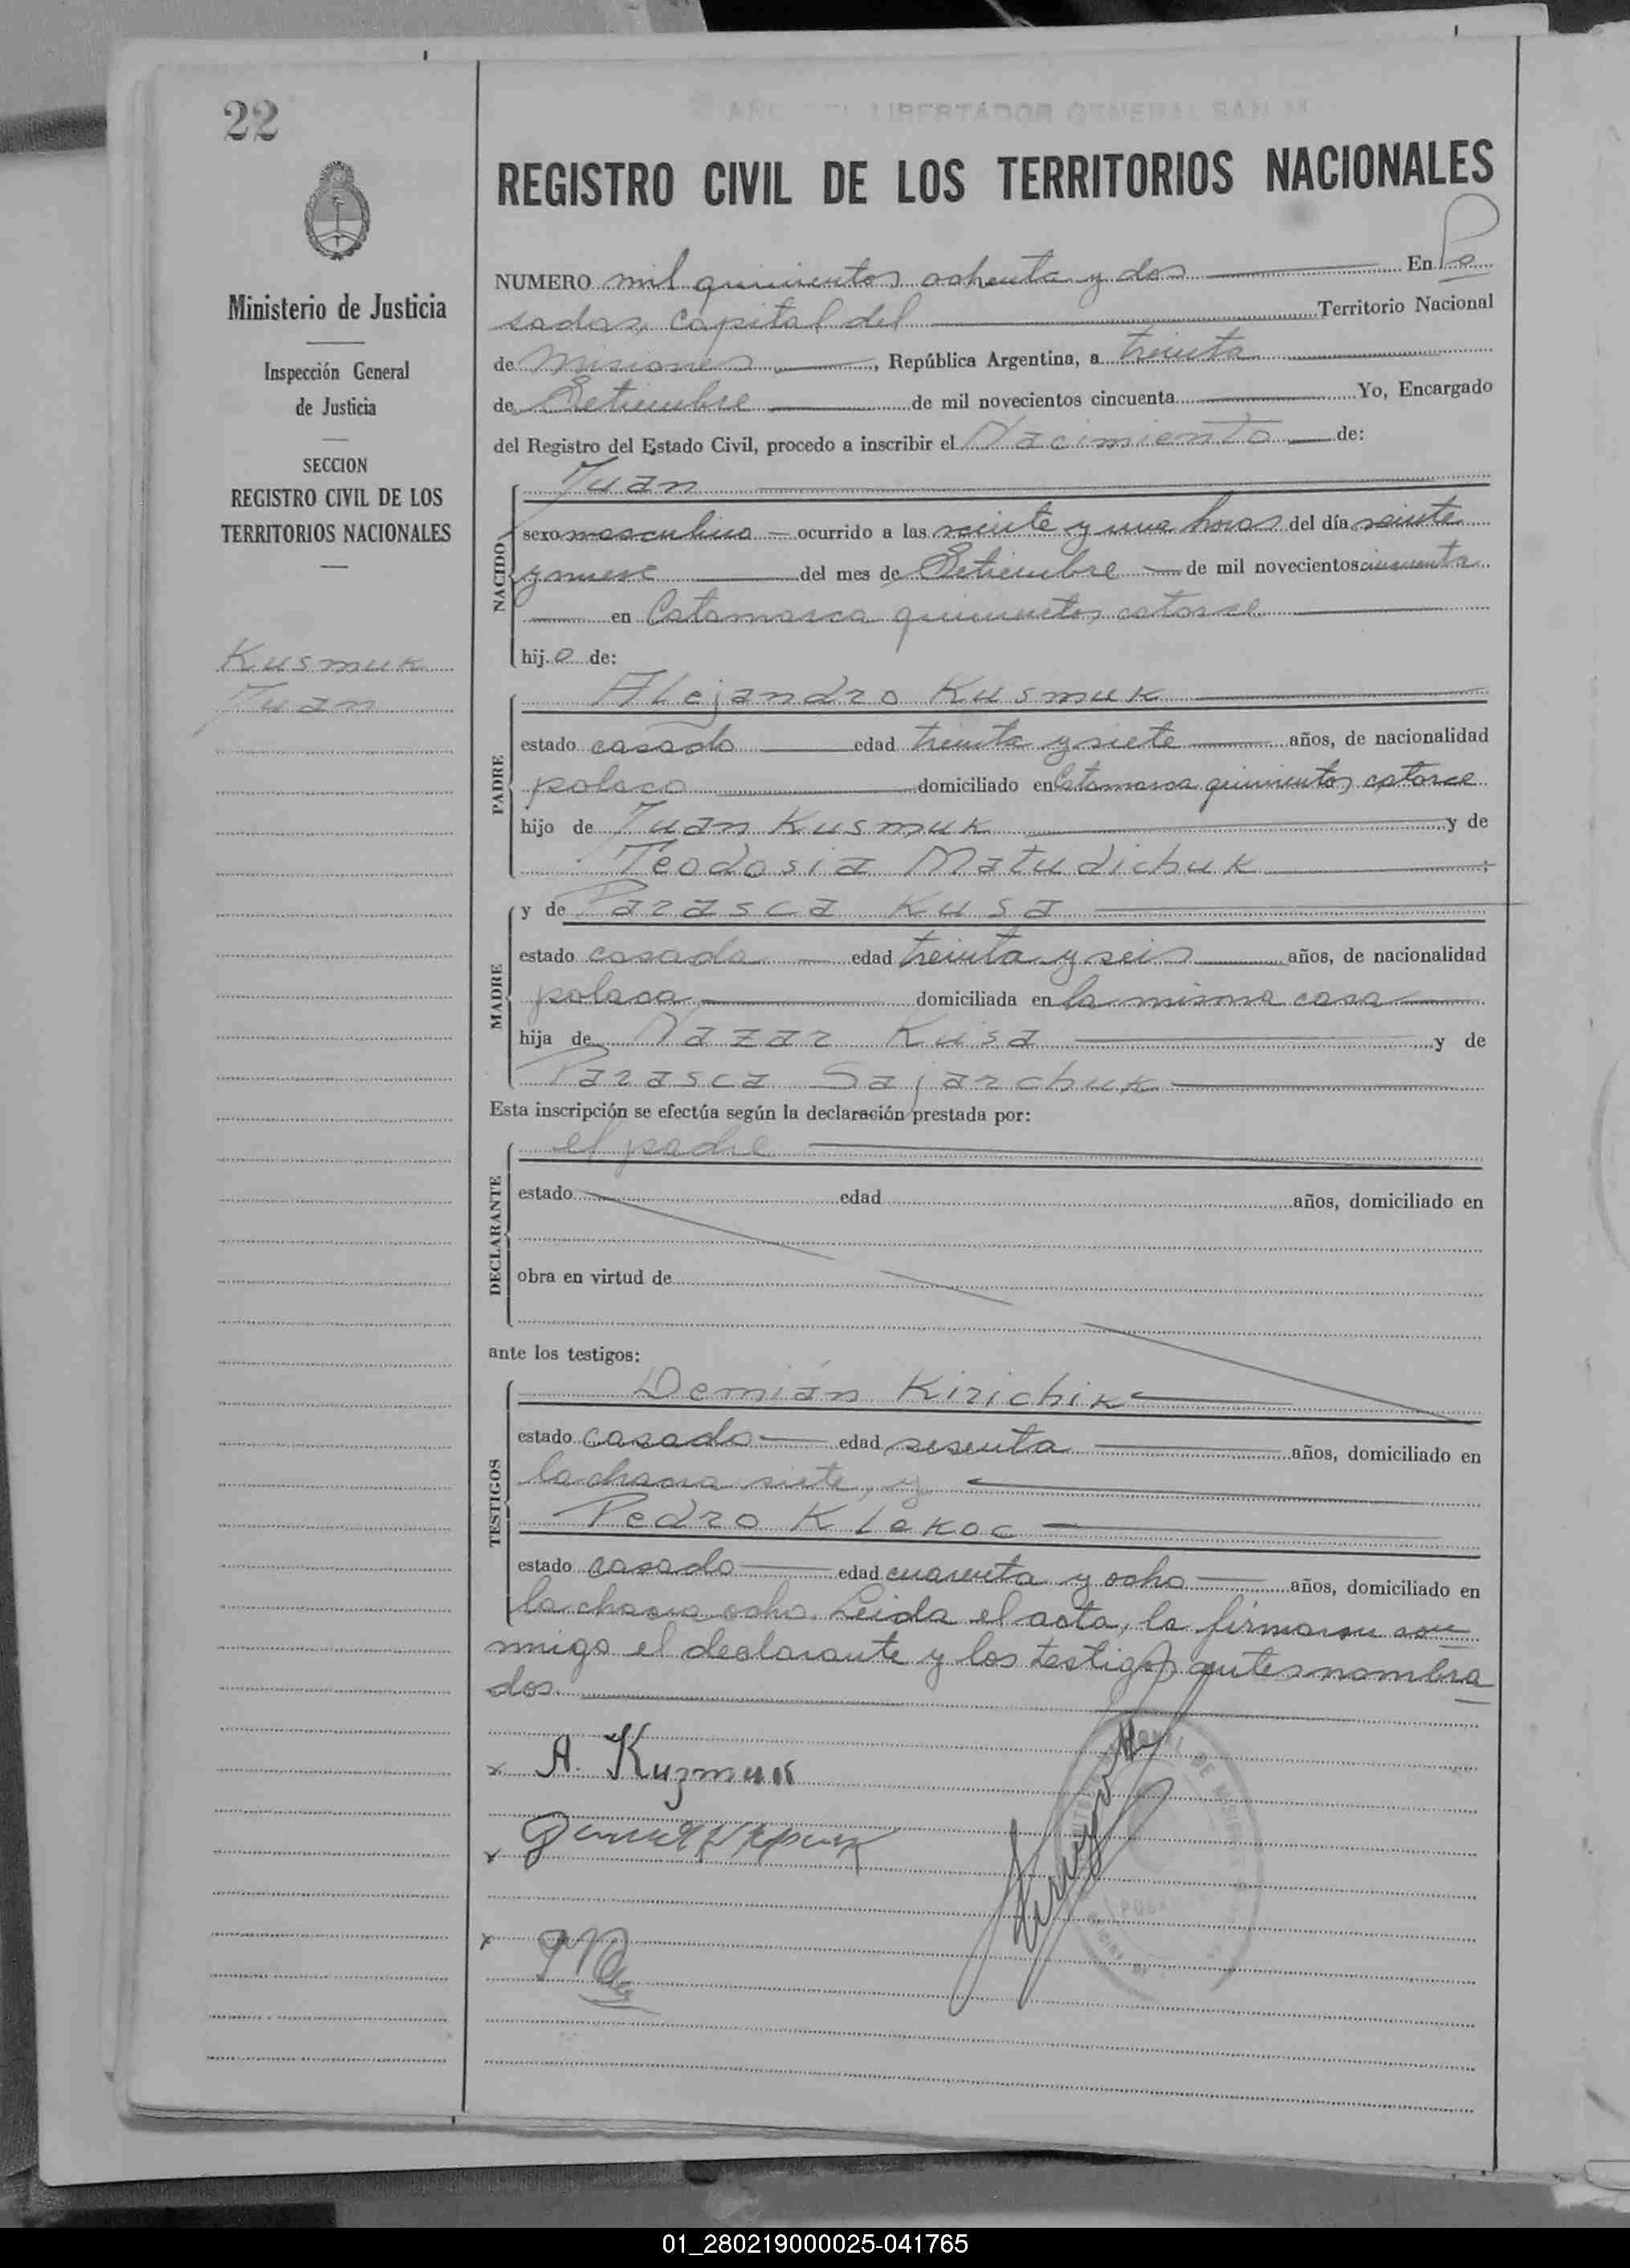 22
AÑO DEL LIBERTADOR GENERAL SAN M
REGISTRO CIVIL DE LOS TERRITORIOS NACIONALES
Ministerio de Justicia
Inspección General
de Justicia
SECCION
REGISTRO CIVIL DE LOS
TERRITORIOS NACIONALES
Kusmuk
Juan
NUMERO mil quinientos ochenta y dos En Po
sadas, capital del Territorio Nacional
de Misiones, República Argentina, a treinta
de Setiembre de mil novecientos cincuenta Yo, Encargado
del Registro del Estado Civil, procedo a inscribir el Nacimiento de:
NACIDO
Juan
sexo masculino ocurrido a las veinte y una horas del día veinte
y nueve del mes de Setiembre de mil novecientos cincuenta
en Catamarca quinientos catorce
hijo de:
PADRE
Alejandro Kusmuk
estado casado edad treinta y siete años, de nacionalidad
polaco domiciliado en Catamarca quinientos catorce
hijo de Juan Kusmuk y de
Teodosia Matudichuk;
MADRE
y de Parasca Kusa
estado casada edad treinta y seis años, de nacionalidad
polaca domiciliada en la misma casa
hija de Nazar Kusa y de
Parasca Sajarchuk
Esta inscripción se efectúa según la declaración prestada por:
DECLARANTE
el padre
estado edad años, domiciliado en
obra en virtud de
ante los testigos:
TESTIGOS
Demián Kirichik
estado casado edad sesenta años, domiciliado en
la chacra siete, y
Pedro Klekoc
estado casado edad cuarenta y ocho años, domiciliado en
la chacra ocho. Leida el acta, la firmaron con
migo el declarante y los testigos antes nombra
dos.
x A. Kuzmuk
x
x
01_280219000025-041765